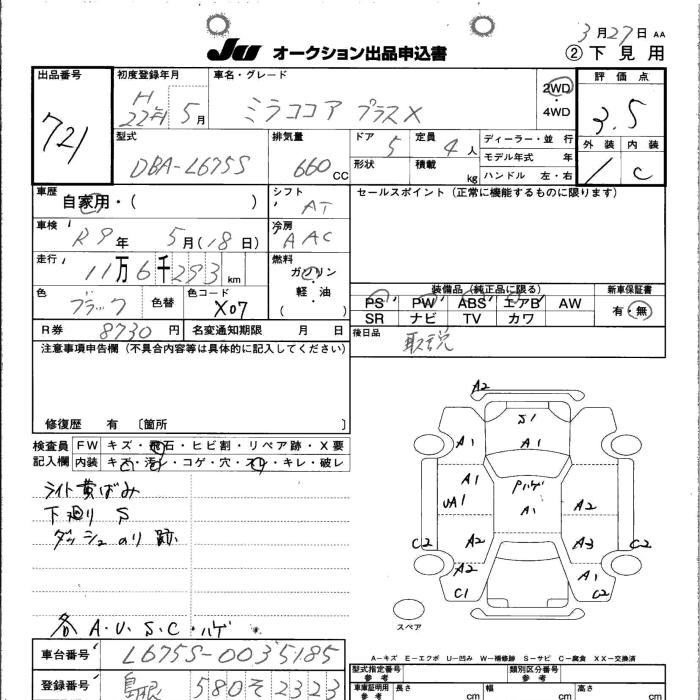 3月27日 AA
JU オークション出品申込書 ②下見用
出品番号 初度登録年月 車名・グレード 評価点
721 H22年5月 ミラココア プラスX 2WD・4WD 3.5
型式 排気量 ドア 定員 ディーラー・並 行 外装 内装
DBA-L675S 660CC 5 4人 モデル年式 年 1 C
形状 積載 kg ハンドル 左・右
車歴 シフト セールスポイント(正常に機能するものに限ります)
自家用・( ) AT
車検 冷房
R9年 5月(18日) AAC
走行 燃料
11万6千293km ガソリン
軽・油
( )
色 色替 色コード 装備品(純正品に限る) 新車保証書
ブラック X07 PS PW ABS エアB AW 有・無
SR ナビ TV カワ
R券 8730円 名変通知期限 月 日 後日品
取説
注意事項申告欄(不具合内容等は具体的に記入してください)
修復歴 有 〔箇所 〕
検査員 FW キズ・飛石・ヒビ割・リペア跡・X要
記入欄 内装 キズ・汚レ・コゲ・穴・スレ・キレ・破レ
ライト黄ばみ
下廻り S
ダッシュのり跡
各 A.U.S.C.ハゲ
A2
S1
A1 A1
A1 Pハゲ
UA1 A1 A2
C2 A2 A3 C2
A2 A1
C1 C2
スペア
A-キズ E-エクボ U-凹み W-補修跡 S-サビ C-腐食 XX-交換済
車台番号 L675S-0035185 型式指定番号 参考 類別区分番号 参考
登録番号 島根 580 そ 2323 車庫証明用 参考 長さ 幅 高さ